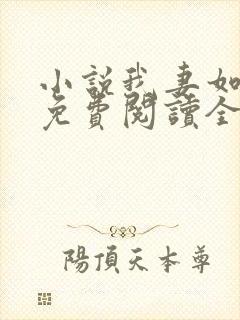 小說我妻如
免費閱讀全
陽頂天本尊